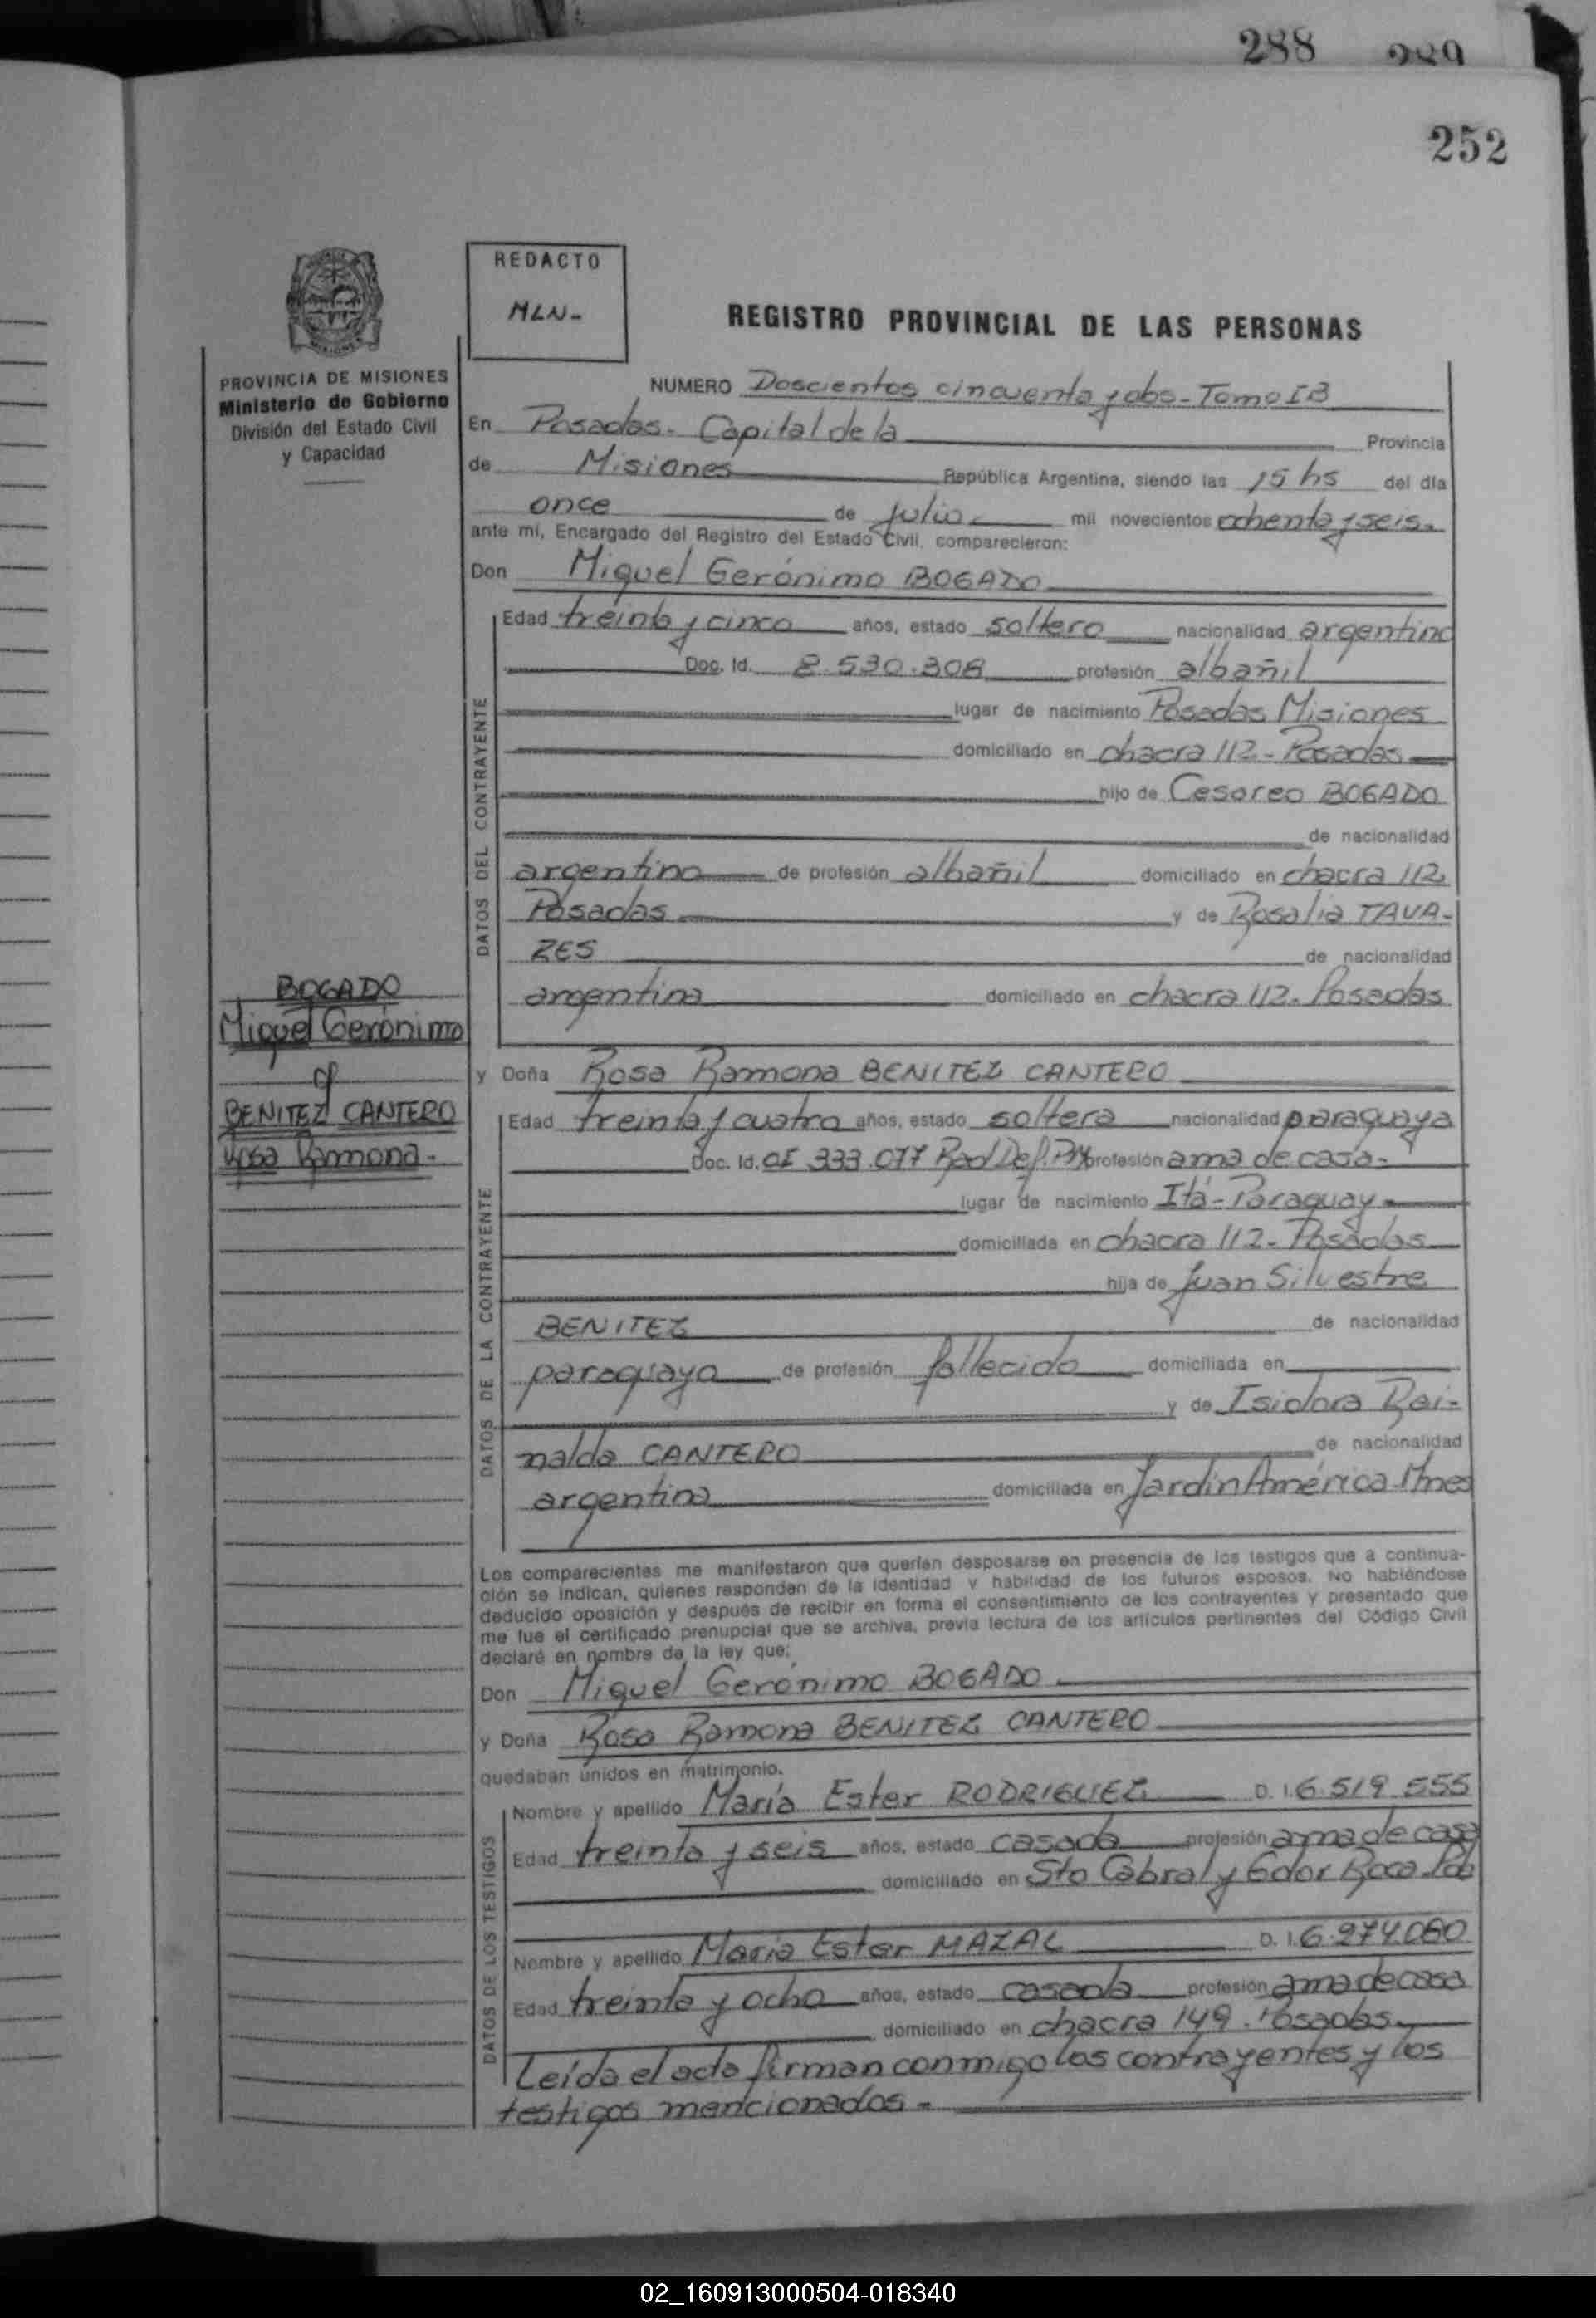 288 289
252
REDACTO
MLN-
REGISTRO PROVINCIAL DE LAS PERSONAS
PROVINCIA DE MISIONES
Ministerio de Gobierno
División del Estado Civil
y Capacidad
NUMERO Doscientos cincuenta y dos - Tomo I B
En Posadas - Capital de la Provincia
de Misiones República Argentina, siendo las 15 hs del día
once de julio mil novecientos ochenta y seis.
ante mí, Encargado del Registro del Estado Civil, comparecieron:
Don Miguel Gerónimo BOGADO
DATOS DEL CONTRAYENTE
Edad treinta y cinco años, estado soltero nacionalidad argentino
Doc. Id. 8.530.308 profesión albañil
lugar de nacimiento Posadas Misiones
domiciliado en chacra 112 - Posadas
hijo de Cesareo BOGADO
de nacionalidad
argentino de profesión albañil domiciliado en chacra 112
Posadas y de Rosalia TAVA-
RES de nacionalidad
argentina domiciliado en chacra 112 - Posadas
BOGADO
Miguel Gerónimo
c/
BENITEZ CANTERO
Rosa Ramona -
y Doña Rosa Ramona BENITEZ CANTERO
DATOS DE LA CONTRAYENTE
Edad treinta y cuatro años, estado soltera nacionalidad paraguaya
Doc. Id. CI 333.077 profesión ama de casa -
lugar de nacimiento Itá - Paraguay
domiciliada en chacra 112 - Posadas
hija de Juan Silvestre
BENITEZ de nacionalidad
paraguayo de profesión fallecido domiciliada en
y de Isidora Rei-
nalda CANTERO de nacionalidad
argentina domiciliada en Jardin América - Mnes
Los comparecientes me manifestaron que querían desposarse en presencia de los testigos que a continua-
ción se indican, quienes responden de la identidad y habilidad de los futuros esposos. No habiéndose
deducido oposición y después de recibir en forma el consentimiento de los contrayentes y presentado que
me fue el certificado prenupcial que se archiva, previa lectura de los artículos pertinentes del Código Civil
declaré en nombre de la ley que:
Don Miguel Gerónimo BOGADO
y Doña Rosa Ramona BENITEZ CANTERO
quedaban unidos en matrimonio.
DATOS DE LOS TESTIGOS
Nombre y apellido María Ester RODRIGUEZ D. I. 6.519.555
Edad treinta y seis años, estado casada profesión ama de casa
domiciliado en Sto Cabral y Gdor Roca Pdas
Nombre y apellido María Ester MAZAL D. I. 6.274.060
Edad treinta y ocho años, estado casada profesión ama de casa
domiciliado en chacra 149 - Posadas
Leída el acta firman conmigo los contrayentes y los
testigos mencionados -
02_160913000504-018340